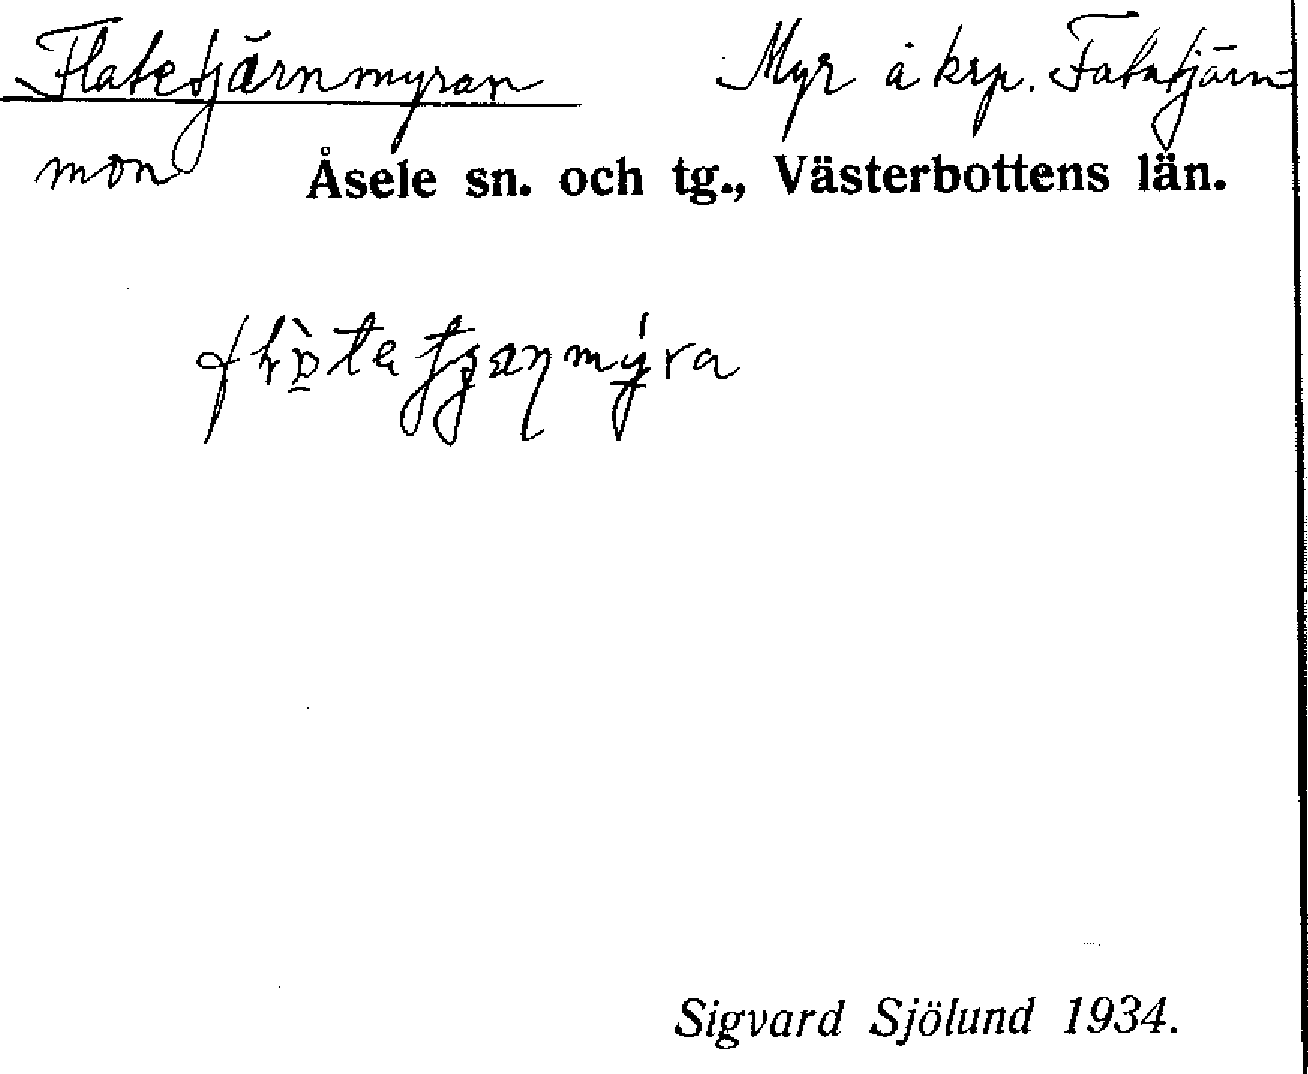 Flatetjärnmyran Myr å krp. Fatatjärn-
mon Åsele sn. och tg., Västerbottens län.
Sigvard Sjölund 1934.